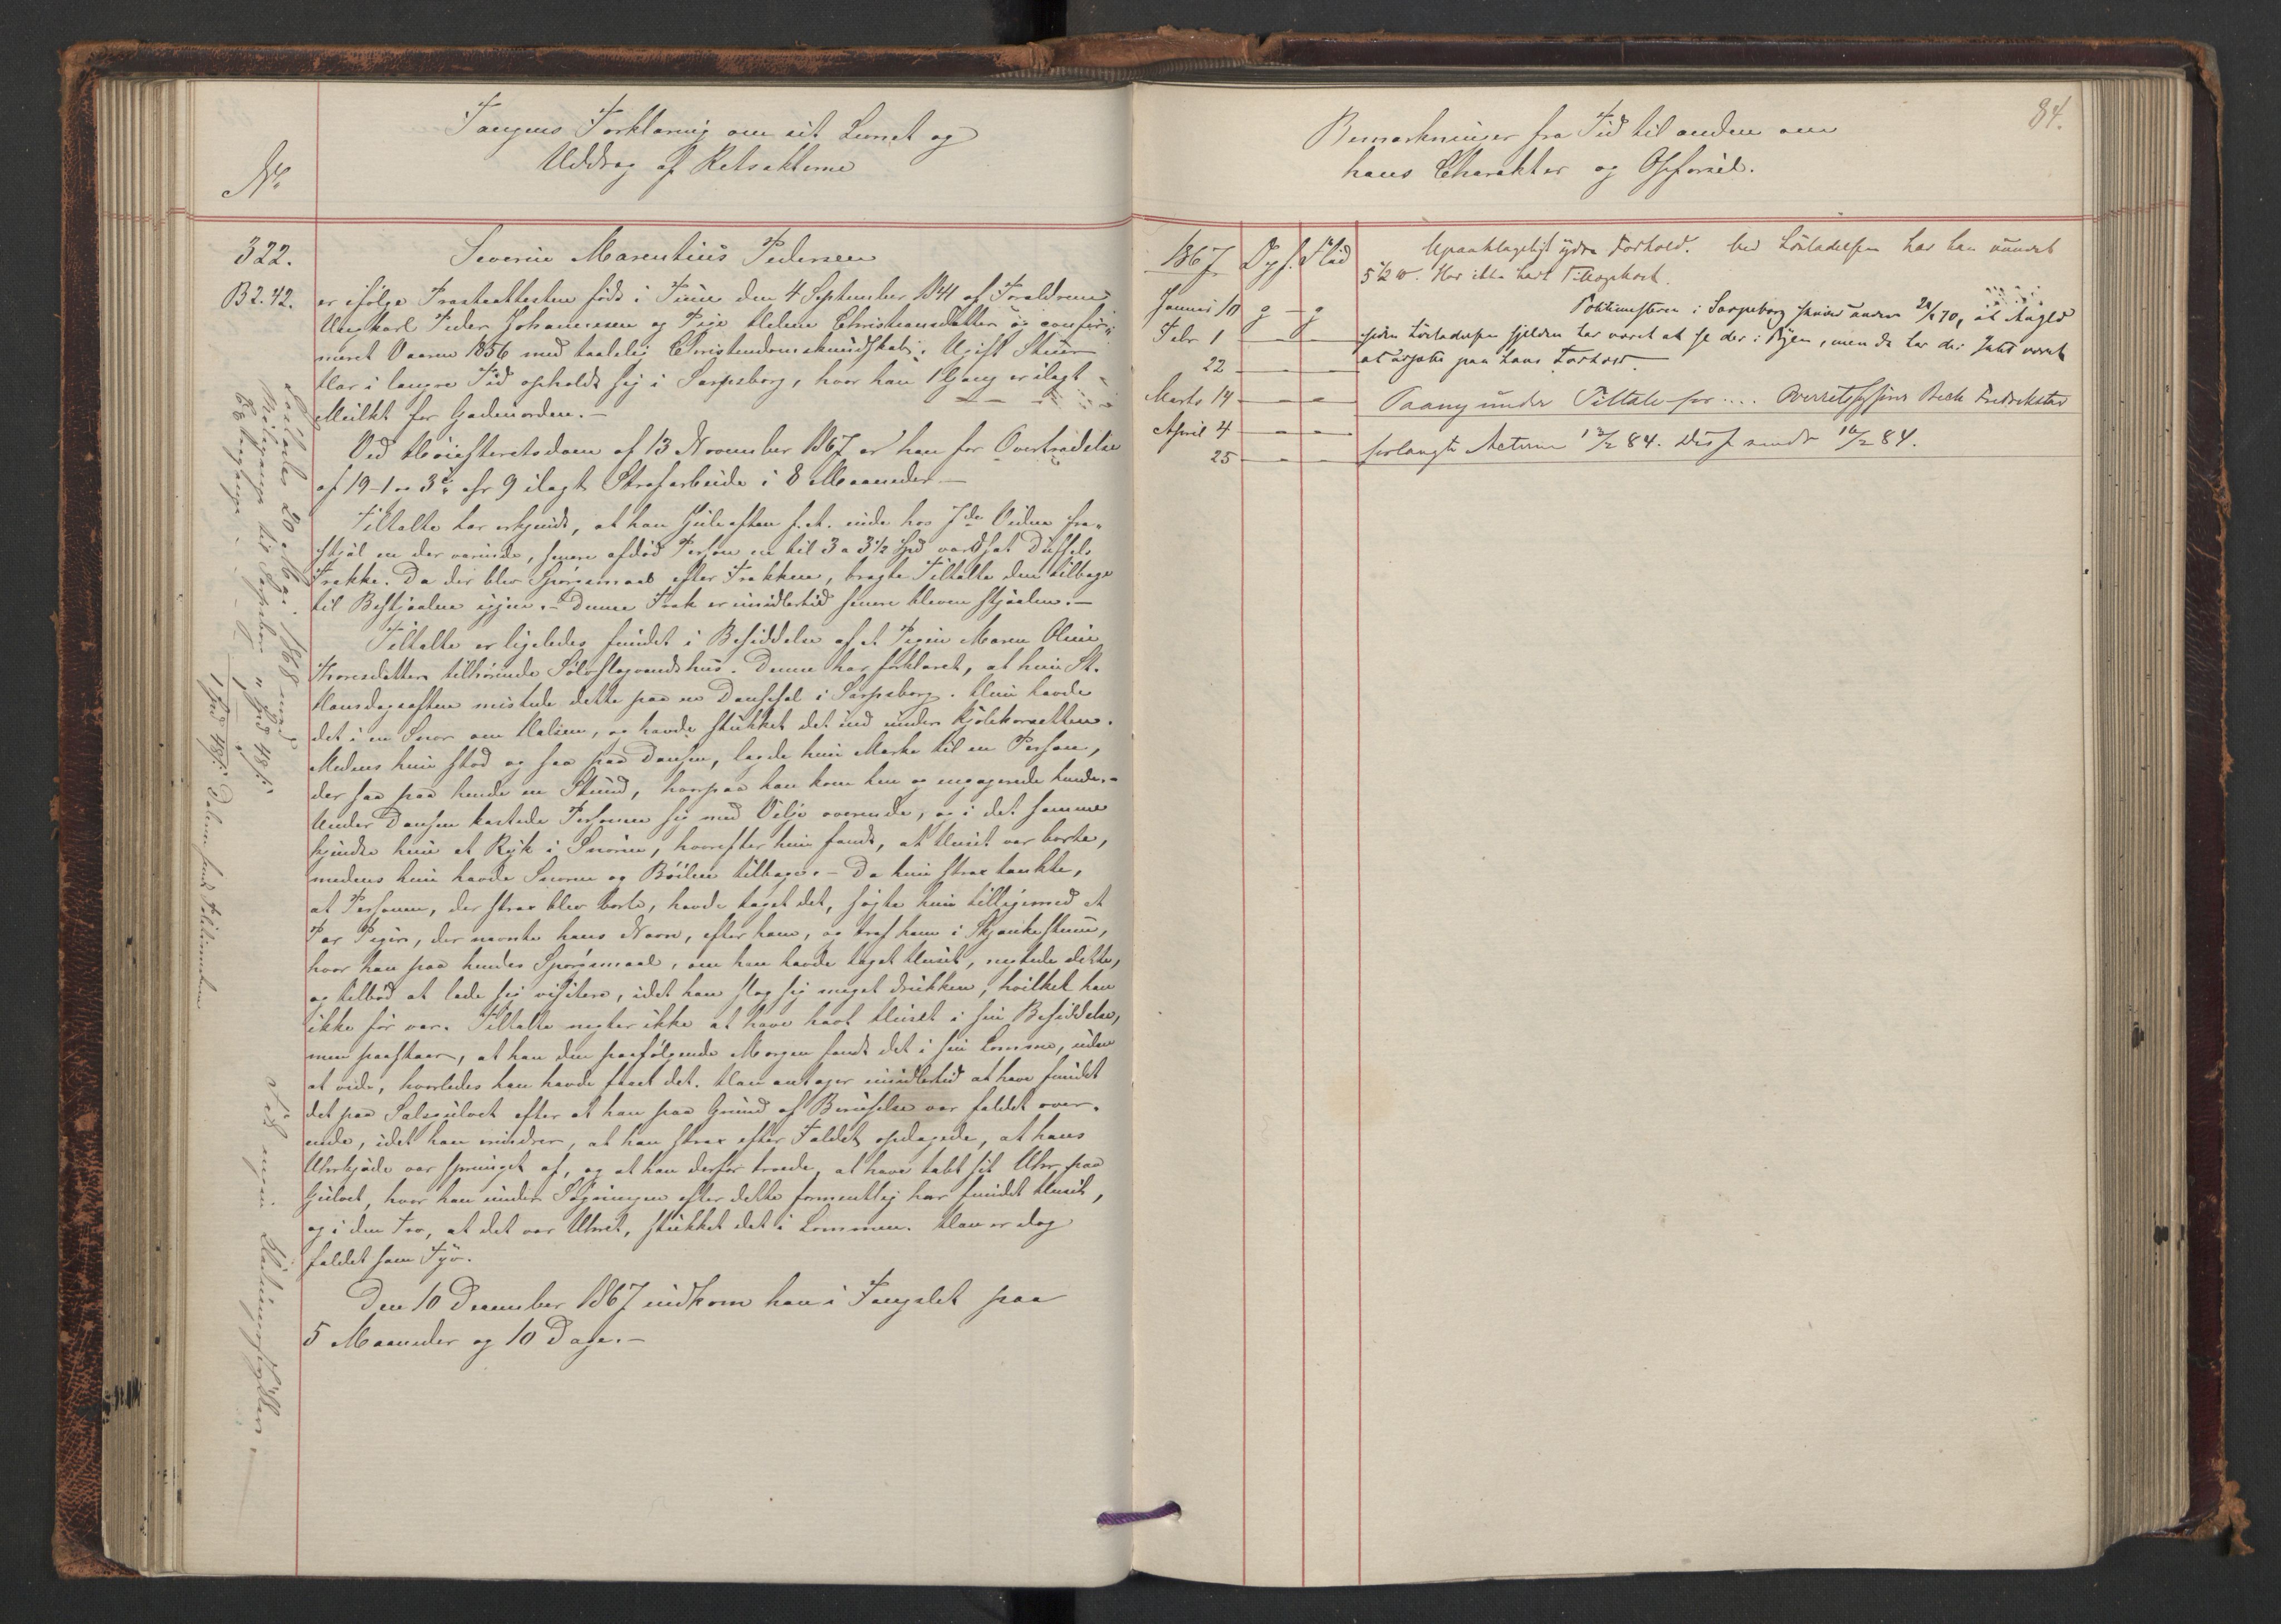 Fangens Forklaring om sit Levnet og
Uddrag af Retsakterne
No
322.
B2.42.
Severin Marentius Pedersen
er ifølge Præsteattesten født i Tune den 4 September 1841 af Forældrene
Ungkarl Peder Johannesen og Pige Helene Christiansdatter og confir-
meret Vaaren 1856 med taalelig Christendomskundskab. Ugift
Har i længre Tid opholdt sig i Sarpsborg, hvor han 1 Gang er ilagt
Mulkt for Gadeuorden.-
Ved Høiesteretsdom af 13 November 1867 er han for Overtrædelse
af 19-1 cfr 9 ilagt Strafarbeide i 8 Maaneder.-
Tiltalte har erkjendt, at han Juleaften f. A. inde hos Enke fra-
stjal en der værende, senere afdød Person en til 3 a 3½ Spd værdsat Duffels
Frakke. Da der blev Spørgsmaal efter Frakken, bragte Tiltalte den tilbage
til Bestjaalne igjen.- Denne Frak er imidlertid senere bleven stjaalen.-
Tiltalte er ligeledes fundet i Besiddelse af et Pigen Maren Oline
Thoresdatter tilhørende Sølvhovedvandshus. Denne har forklaret, at hun St.
Hansdagsaften mistede dette paa en Dansesal i Sarpsborg. Hun havde
det i en Snor om Halsen, og havde stukket det ind under Kjolekorsettet.
Medens hun stod og saa paa Dansen, lagde hun Mærke til en Person,
der saa paa hende en Stund, hvorpaa han kom hen og engagerede hende.-
Under Dansen kastede Personen sig med Vilje overende, og i det samme
kjendte hun et Ryk i Snoren, hvorefter hun fandt, at Huset var borte,
medens hun havde Snoren og Bøilen tilbage.- Da hun strax tænkte,
at Personen, der strax blev borte, havde taget det, søgte hun tilligemed et
Par Piger, der nævnte hans Navn, efter ham, og traf ham i Skjænkestuen,
hvor han paa hendes Spørgsmaal, om han havde taget Huset, negtede dette,
og tilbød at lade sig visitere, idet han slog sig meget drukken, hvilket han
ikke før var. Tiltalte negter ikke at have havt Huset i sin Besiddelse,
men paastaar, at han den paafølgende Morgen fandt det i sin Lomme, uden
at vide, hvorledes han havde faaet det. Han antager imidlertid at have fundet
det paa Salsgulvet efter at han paa Grund af Beruselse var faldt over-
ende, idet han erindrer, at han strax efter Faldet opdagede, at hans
Uhrkjæde var sprunget af, og at han derfor troede, at have tabt sit Uhr paa
Gulvet, hvor han under Søgningen efter dette formentlig har fundet Huset,
og i den Tro, at det var Uhret, stukket det i Lommen. Han er dog
fældet som Tyv.
Den 10 December 1867 indkom han i Fængslet paa
5 Maaneder og 10 Dage.-
Løsladt 20 Mai 1868 med
Reisepenge til Sarpsborg " Spd 48 s.
1 Spd 48 s.
Fik ingen
Bemærkninger fra Tid til anden om
hans Charakter og Opførsel.
84.
1867 Opf. Flid
Januar 10 g - g
Febr 1 - - -
22 - - -
Marts 14 - - -
April 4 - - -
25 - - -
Upaaklageligt ydre Forhold. Ved Løsladelsen har han
Har ikke havt Tillægskost.
Politimesteren i Sarpsborg skriver under 20/1 70, at
siden Løsladelsen sjelden har været at se der i Byen, men da har der Intet været
at udsætte paa hans Forhold.
Paany under Tiltale for .... Overretssagfører Bech Fredrikstad
forlangte Acterne 12/2 84. Disse sendt 16/2 84.